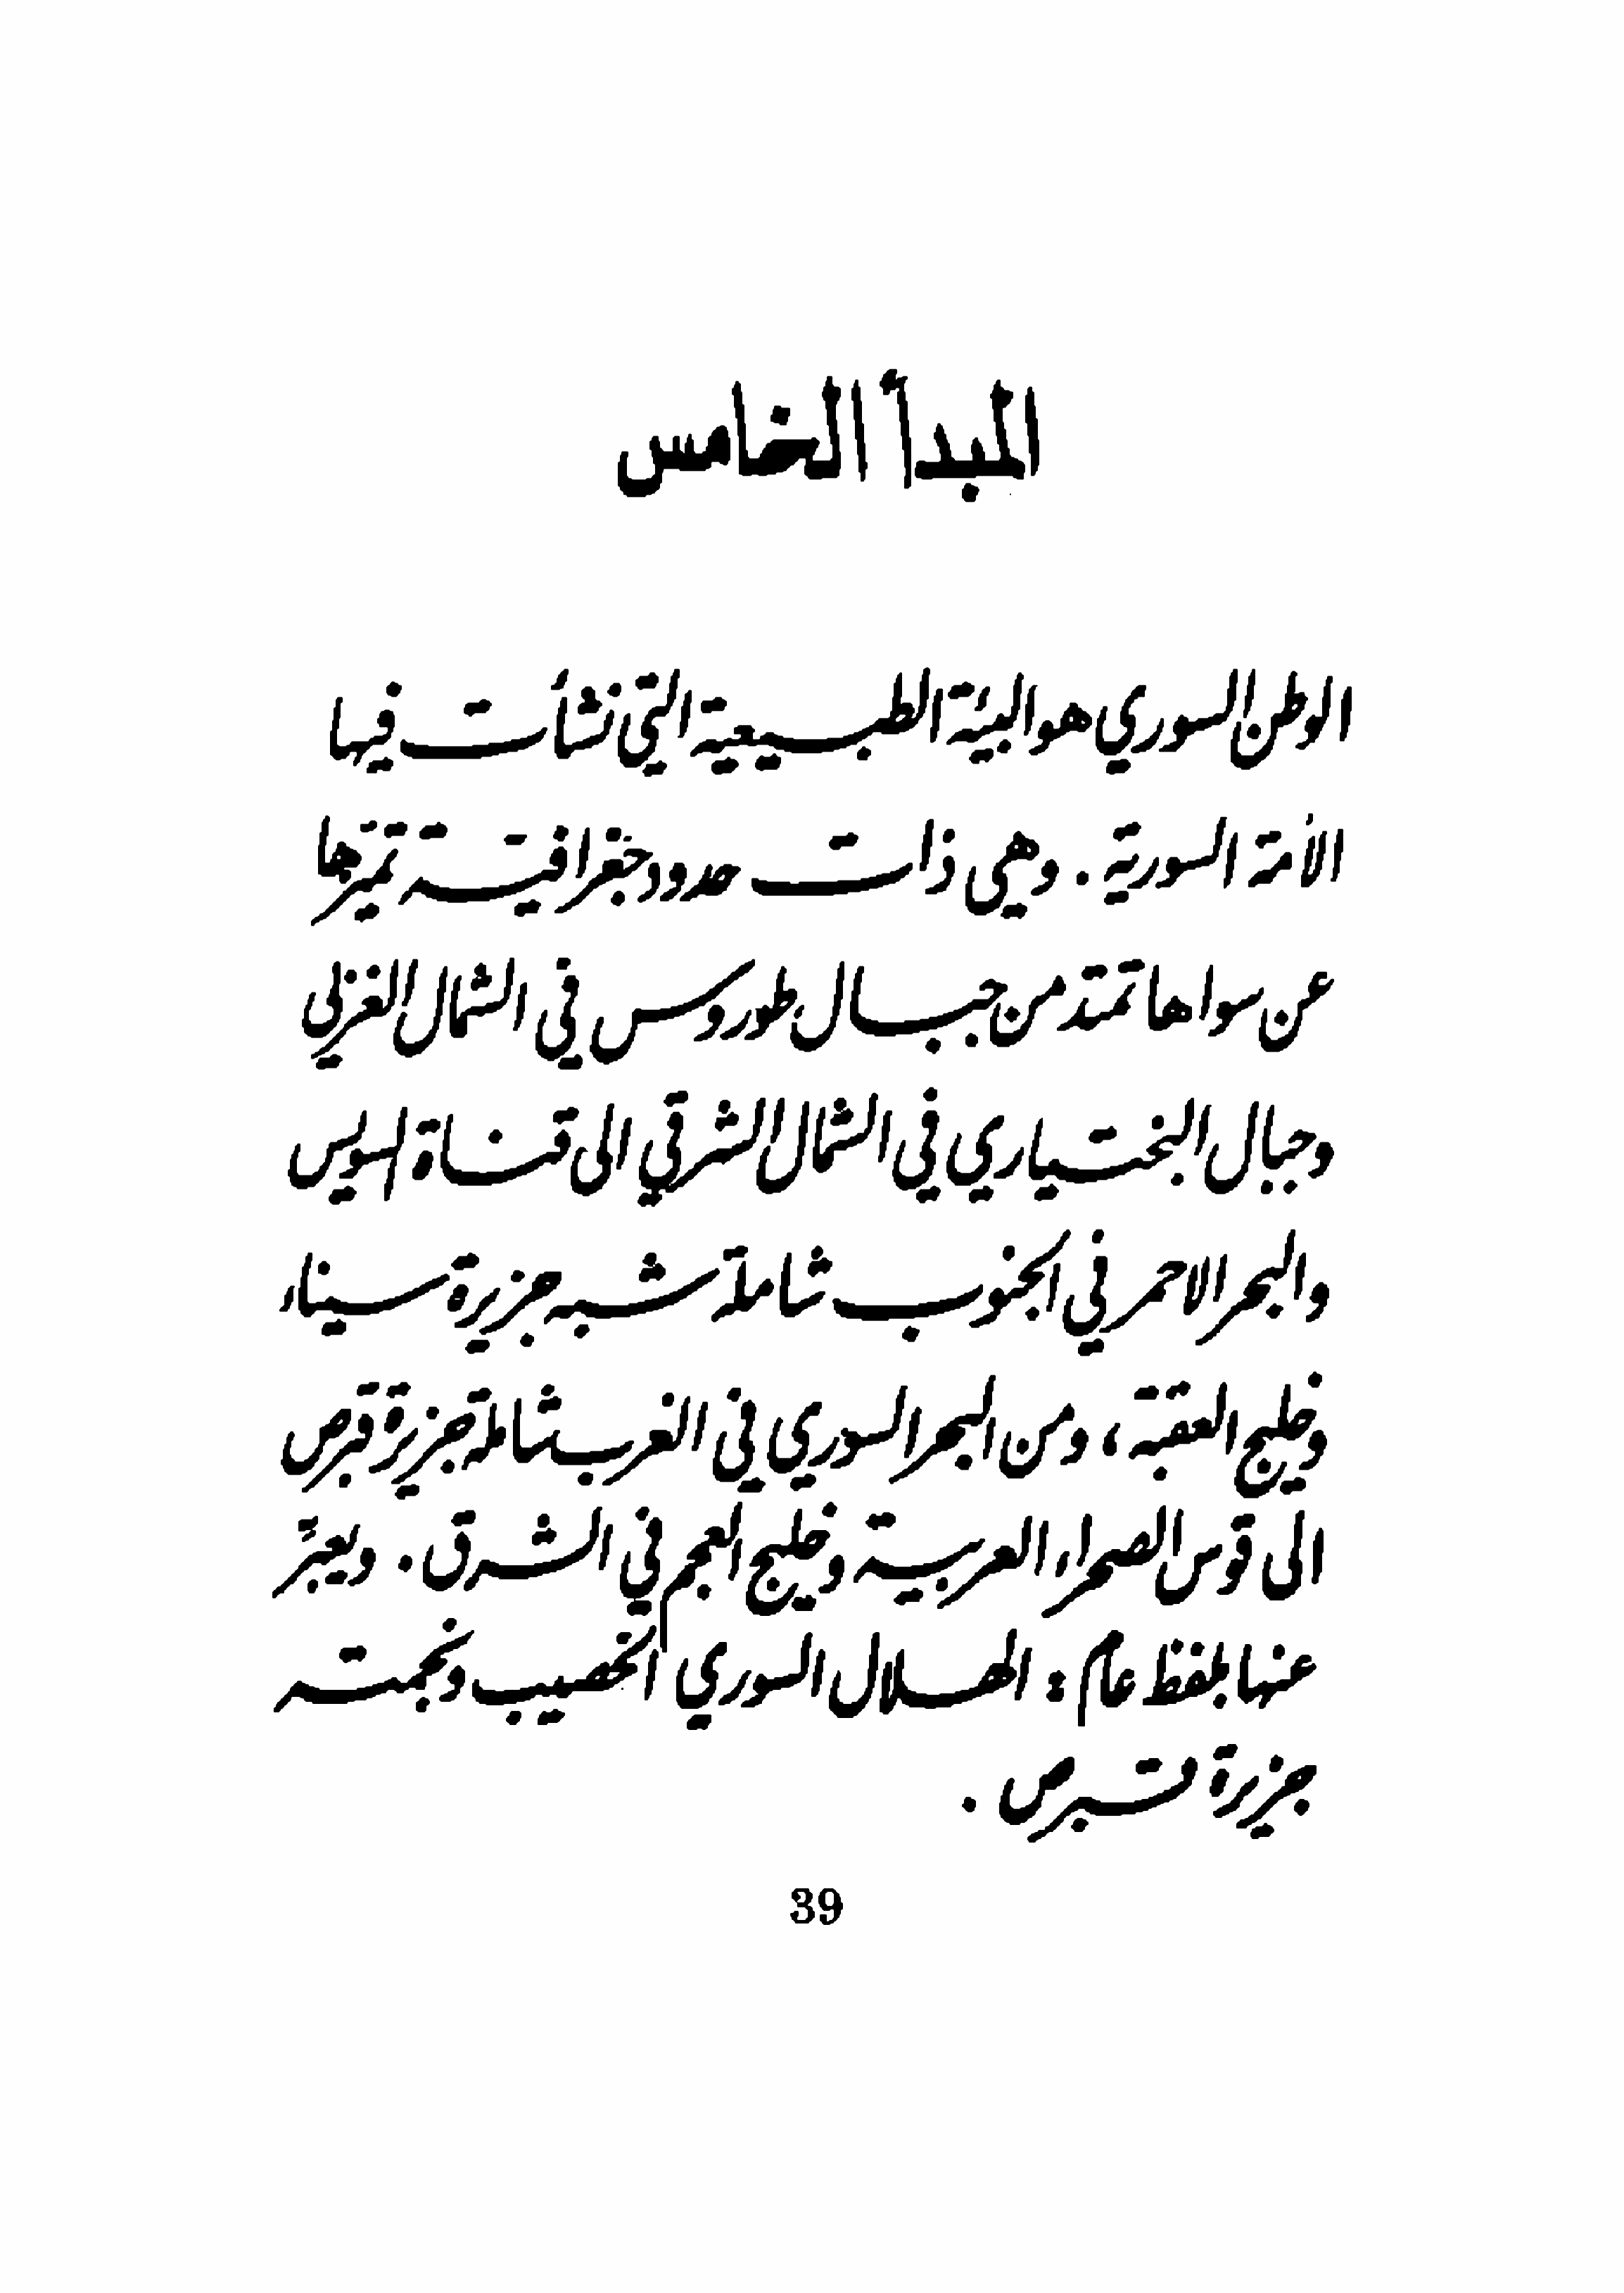 المبدأ الخامس
الوطن السوري هو البيئة الطبيعية التي نشأت فيها
الامة السورية . وهي ذات حدود جغرافية تميزها
عن سواها تمتد من جبال طوروس في الشمال الغربي
وجبال البختياري في الشمال الشرقي الى قناة السويس
والبحر الاحمر في الجنوب شاملة شبه جزيرة سيناء
وخليج العقبة ، ومن البحر السوري في الغرب شاملة جزيرة قبرص
الى قوس الصحراء العربية وخليج العجم في الشرق . ويعبّر
عنها بلفظ عام : الهلال السوري الخصيب ونجمته
جزيرة قبرص .
39